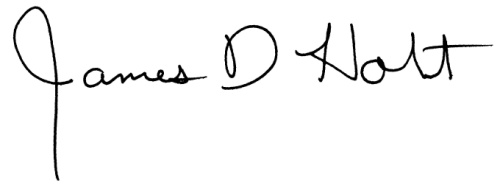 James D Holt